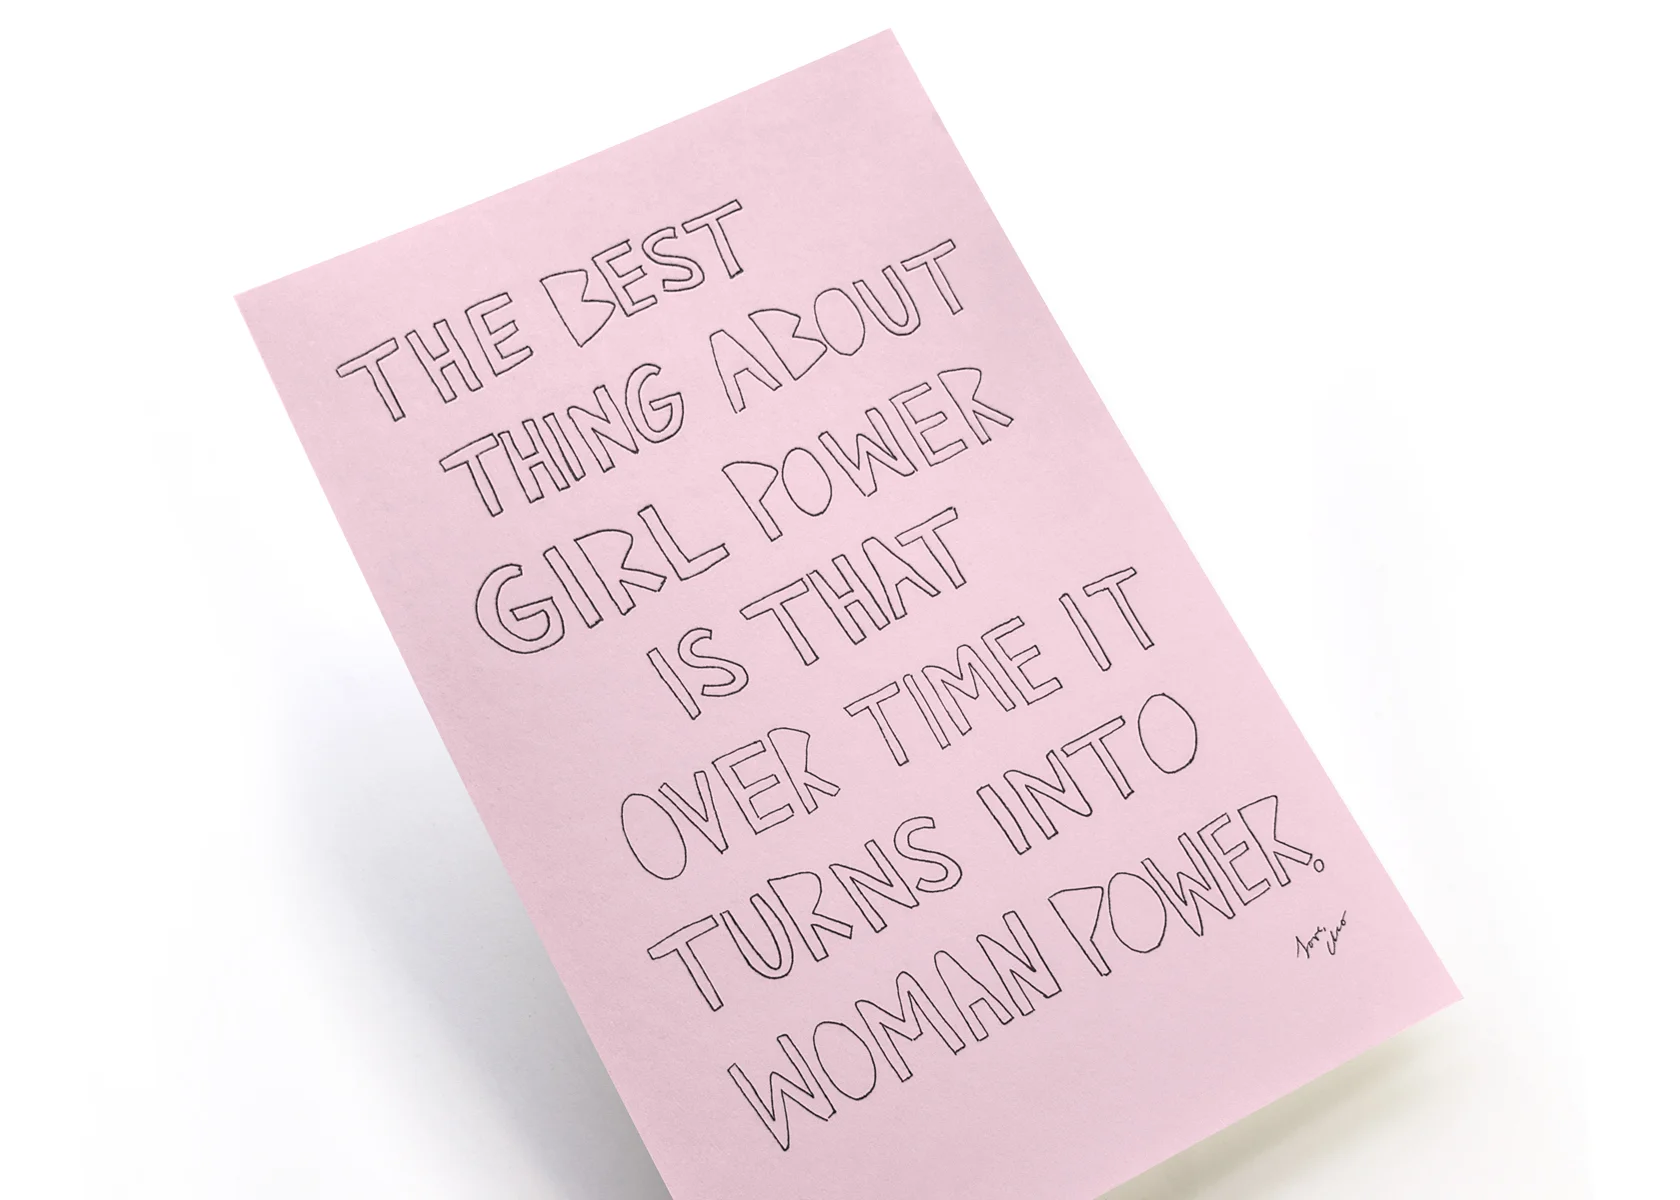 THE BEST
THING ABOUT
GIRL POWER
IS THAT
OVER TIME IT
TURNS INTO
WOMAN POWER.
love,